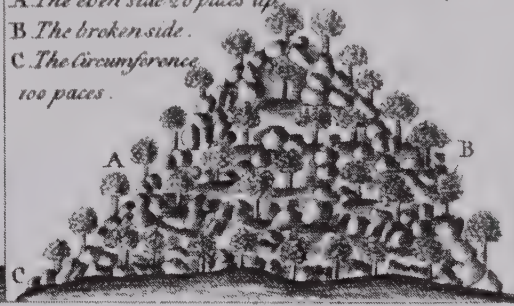 A. The even side 20 paces up.
B. The broken side.
C. The Circumference
100 paces.
A
B
C